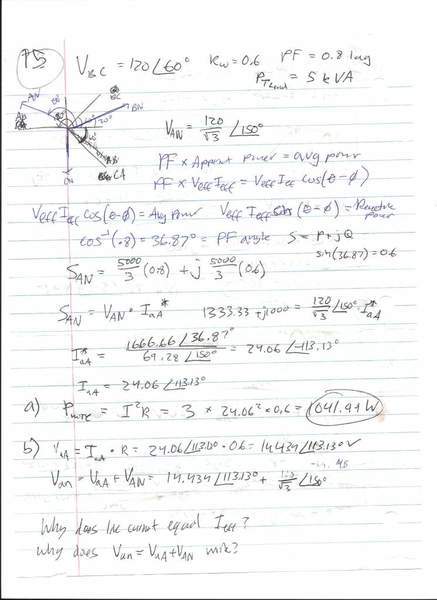 15
V_BC = 120∠60° R_w = 0.6 PF = 0.8 lag
P_TLoad = 5 kVA
AN
BC
BN
CA
CN
V_AN = 120/√3 ∠150°
PF × Apparent power = avg power
PF × Veff Ieff = Veff Ieff cos(θ-φ)
Veff Ieff cos(θ-φ) = Avg Power Veff Ieff sin(θ-φ) = Reactive power
cos⁻¹(.8) = 36.87° = PF angle S = P + jQ
sin(36.87) = 0.6
S_AN = 5000/3 (0.8) + j 5000/3 (0.6)
S_AN = V_AN · I_aA* 1333.33 + j1000 = 120/√3 ∠150° · I_aA*
I_aA* = 1666.66∠36.87° / 69.28∠150° = 24.06∠-113.13°
I_aA = 24.06∠113.13°
a) P_wire = I²R = 3 × 24.06² × 0.6 = 1041.94 W
b) V_aA = I_aA · R = 24.06∠113.13° · 0.6 = 14.434∠113.13° V
V_an = V_aA + V_AN = 14.434∠113.13° + 120/√3 ∠150°
Why does line current equal Ieff?
Why does V_an = V_aA + V_AN